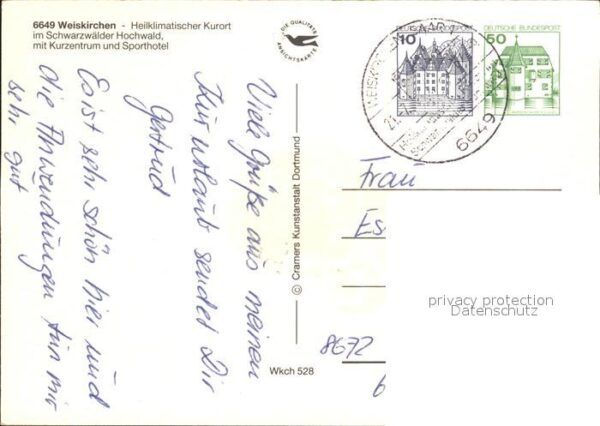 6649 Weiskirchen - Heilklimatischer Kurort
im Schwarzwälder Hochwald,
mit Kurzentrum und Sporthotel
DIE QUALITÄTS
ANSICHTSKARTE
Viele Grüße aus meinen
Kururlaub sendet Dir
Gertrud
Es ist sehr schön hier und
die Anwendungen tun mir
sehr gut
© Cramers Kunstanstalt Dortmund
Wkch 528
10
DEUTSCHE BUNDESPOST
50
6649
Frau
Es
8672
6
privacy protection
Datenschutz